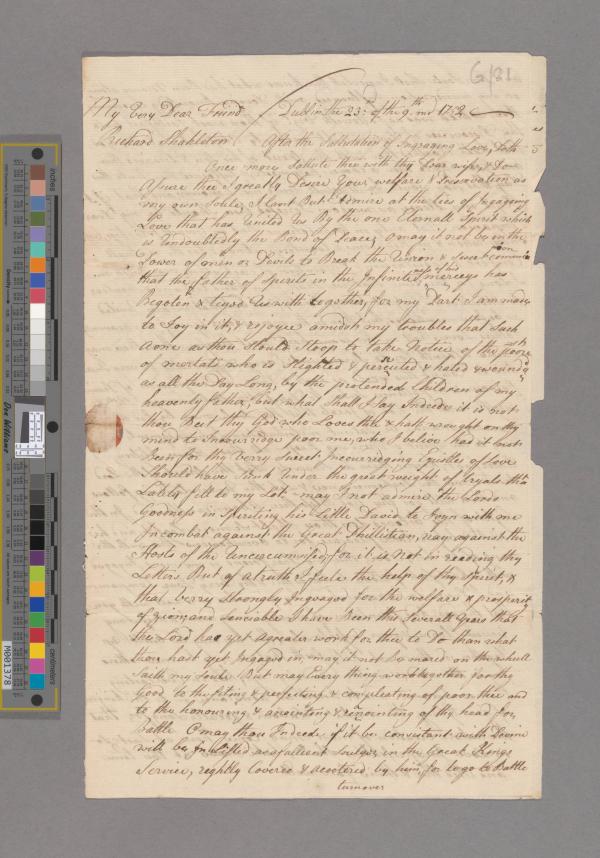 G/31
My Very Dear Friend Dublin the 23d of the 9th mo 1752
Richard Shakleton After the Salutation of Ingraging Love, doth
Once more Salute thee with thy Dear wife, & Do
Asure thee I greatly Desire Your welfare & Preservation as
my own Soule, I Cant But admire at the ties of Ingaging
Love that has United Us By the one Eternall Spirit which
is Undoubtedly the Bond of Peace, o may it not be in the
Power of men or Devils to Break the Union & Sweet communion
that the father of Spirits in the Infinitness of his mercys has
Begoten & tyed Us with together, for my Part I am made
to Joy in it, & rejoyce amidst my troubles that Such
A one as thou Should Stoop to take Notice of the poorest
of mortals who is Slighted & percuted & haled & wounded
as all the Day Long, by the pretended Children of my
heavenly father, but what Shall I Say Indeede it is not
thou But thy God who Loves thee & hath wrought on thy
mind to Incourridge poor me, who I believe had it not
Been for thy verry Sweet Incourridging Epistles of Love
Should have Sunk Under the great weight of tryals that
Lately fell to my Lot may I not admire the Lords
Goodness in Spiriting his Little David to Joyn with me
In combat against the Great Phillistian, nay against the
Hosts of the Uncircumsised, for it is Not in reading thy
Letters But of a truth I feele the help of thy Spirit, &
that verry Strongly Ingaged for the welfare & prosperity
of zion, and Sencible I have Been this Severall Years that
the Lord has yet a greater work for thee to Do than what
thou hast yet Ingaged in, may it not be mared on the wheell
Saith my Soule But may Every thing work together for thy
Good to the fiting & perfecting & compleating of poor thee and
to the honouring & anointing & anointing of thy head for
Battle O may thou Indeede if it be consistant with Devine
will be Inlisted as a falient Souldger in the Great Kings
Service, rightly Covered & acootered by him, for to go to Battle
turnover
inches
centimeters
Don Williams
M001378